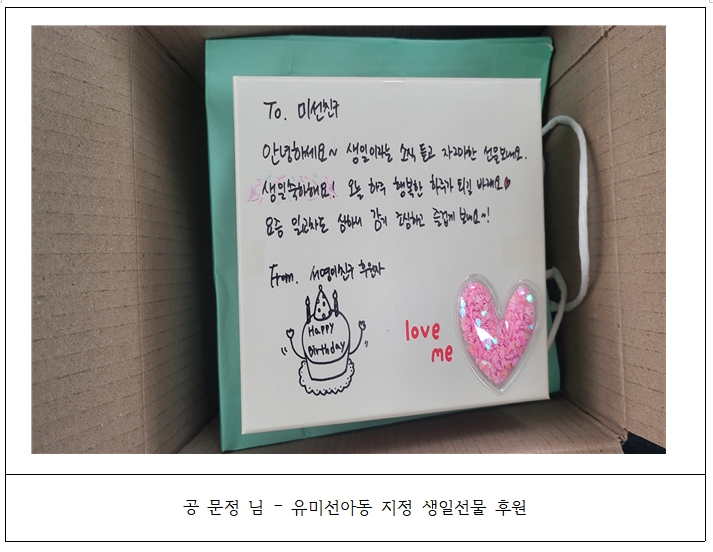 To. 미선친구
안녕하세요~ 생일이라는 소식 듣고 자그마한 선물보내요.
생일축하해요! 오늘 하루 행복한 하루가 되길 바래요♥
요즘 일교차도 심하니 감기 조심하고 즐겁게 보내요~!
From. 서영이친구 후원자
Happy
Birthday
love
me
공 문정 님 - 유미선아동 지정 생일선물 후원